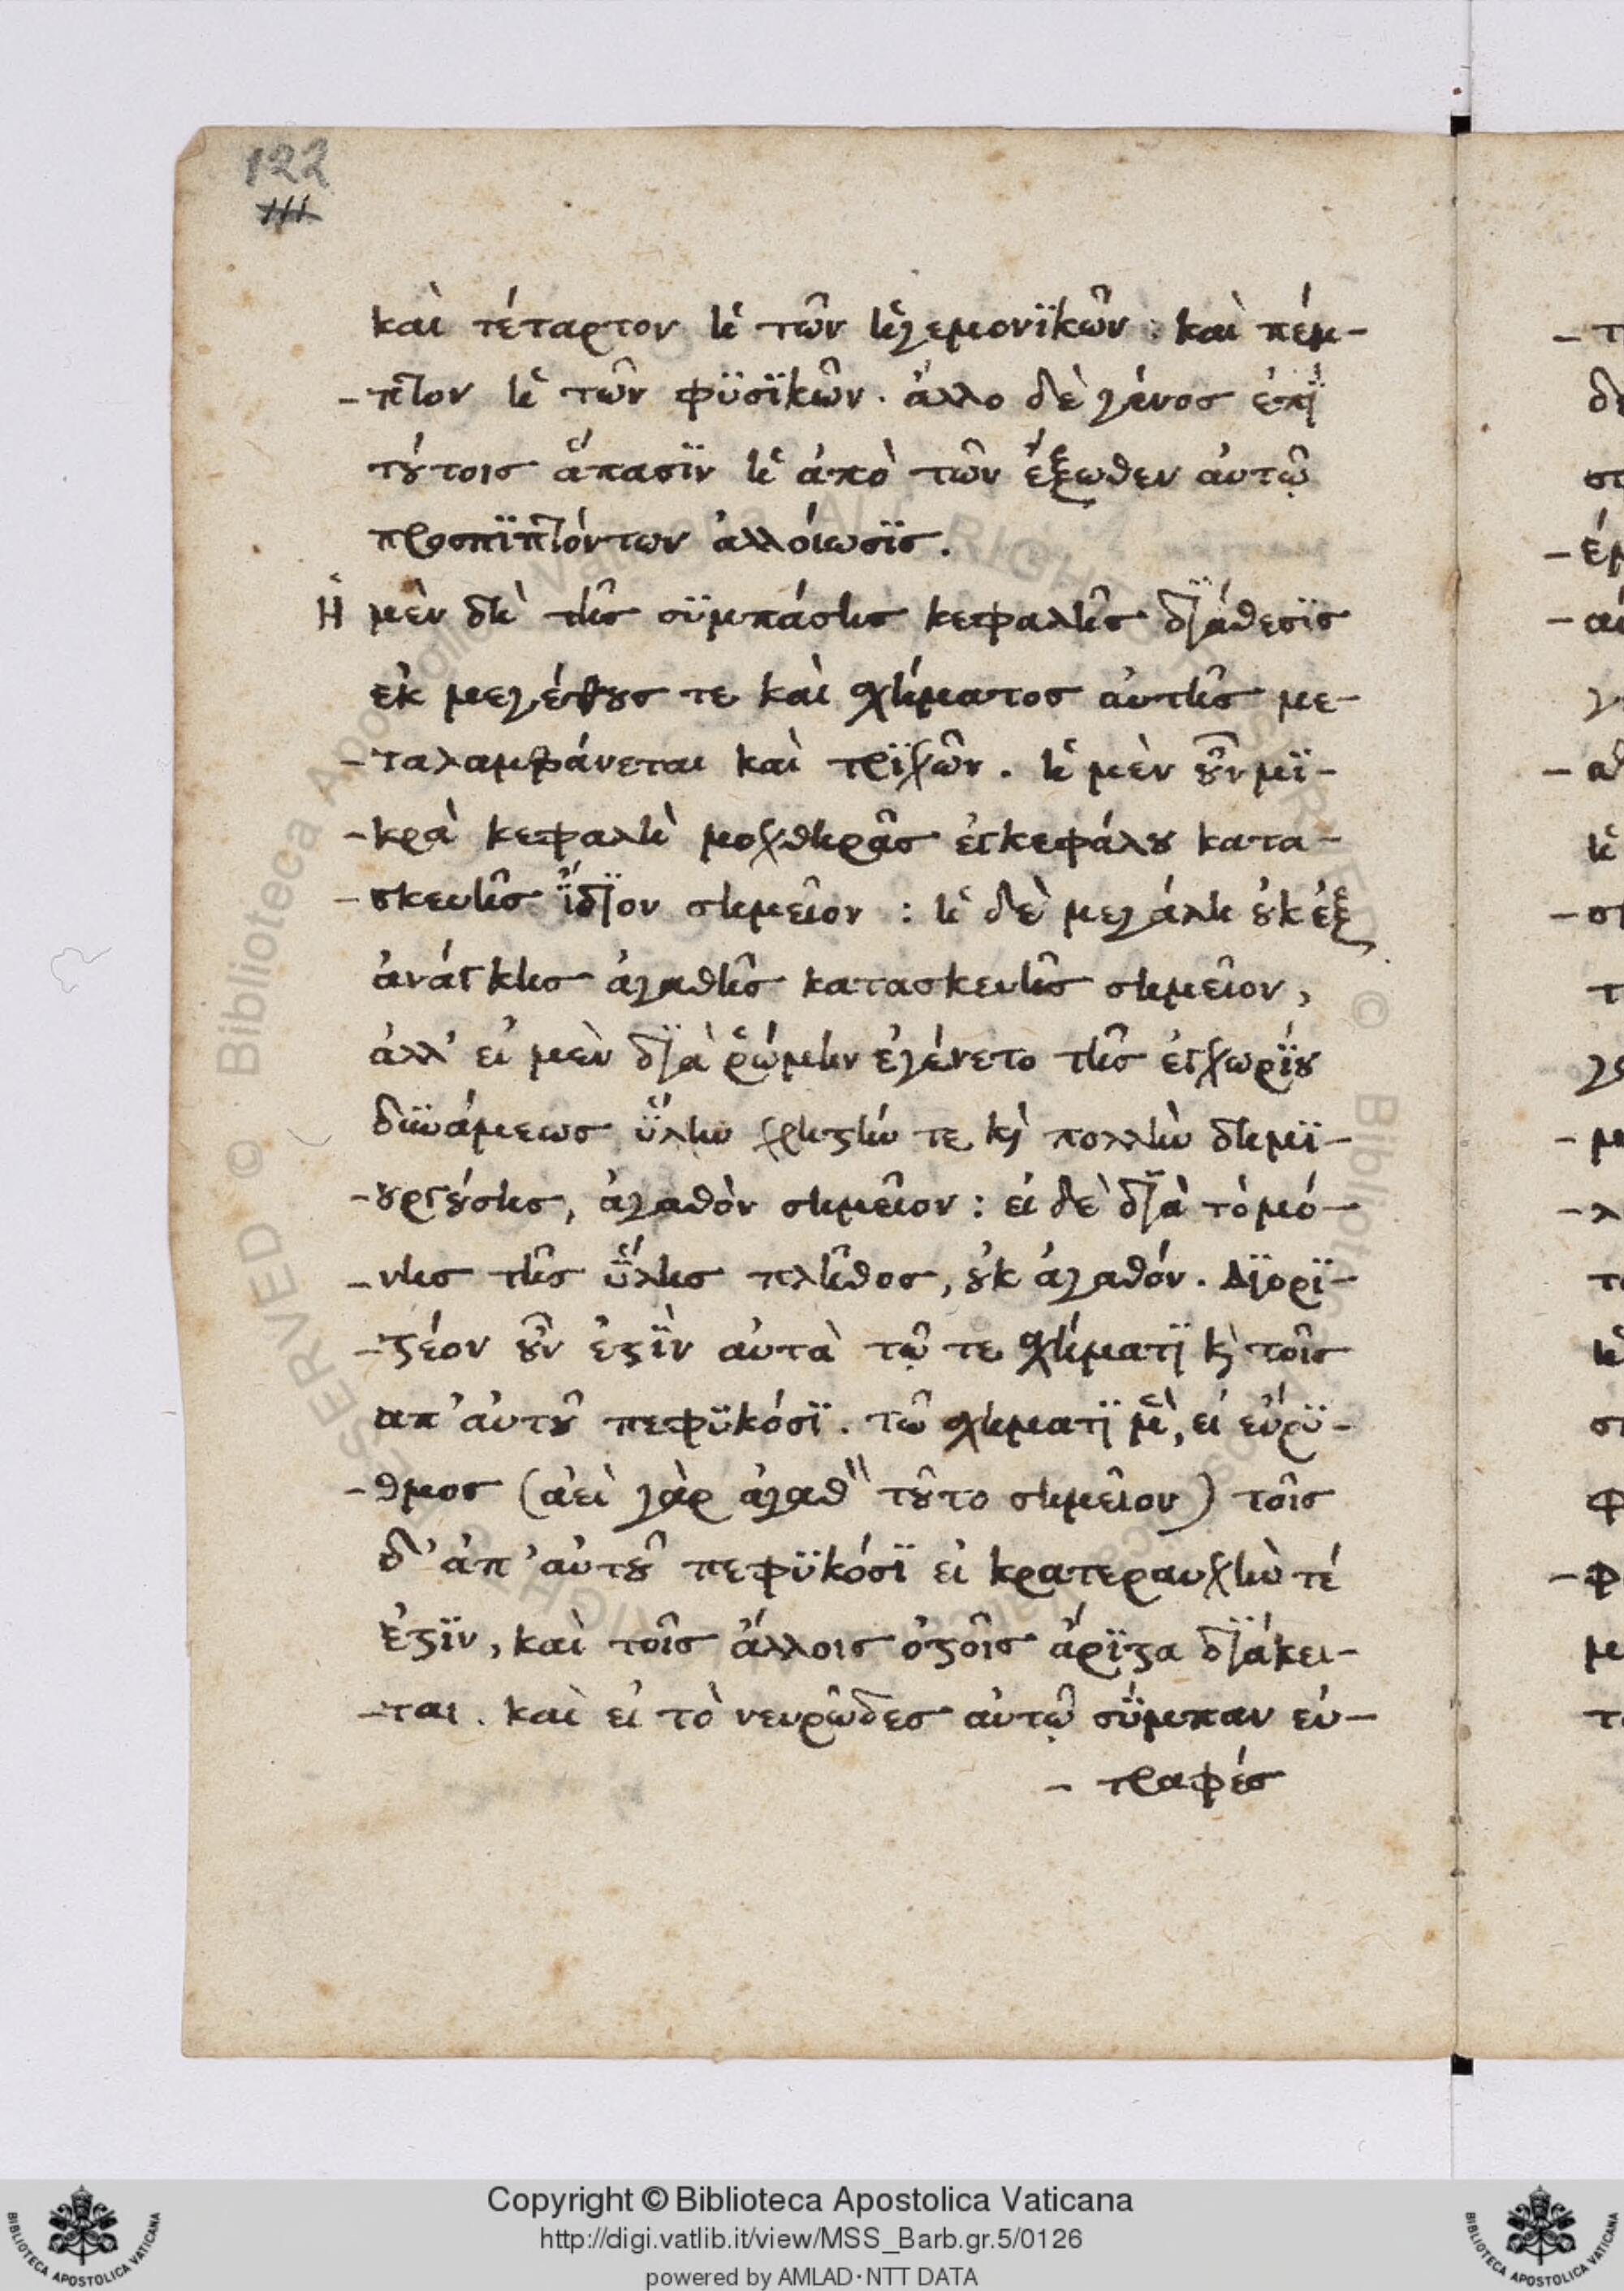 122
111
καὶ τέταρτον ἡ τῶν ἡγεμονϊκῶν. καὶ πέμ-
-πτον ἡ τῶν φϋσϊκῶν. ἄλλο δὲ γένος ἐπῒ
τούτοις ἅπασϊν ἡ ἀπὸ τῶν ἔξωθεν αὐτῷ
προσπϊπτόντων ἀλλοίωσϊς.
Ἡ μὲν δὴ τῆς σϋμπάσης κεφαλῆς δϊάθεσϊς
εκ μεγέθους τε καὶ σχήματος αὐτῆς με-
-ταλαμβάνεται καὶ τρϊχῶν. ἡ μὲν οὖν μϊ-
-κρὰ κεφαλὴ μοχθηρᾶς ἐγκεφάλου κατα-
-σκευῆς ἴδϊον σημεῖον : ἡ δὲ μεγάλη οὐκ ἐξ
ἀνάγκης ἀγαθῆς κατασκευῆς σημεῖον,
ἀλλ' εἰ μὲν δϊὰ ῥώμην ἐγένετο τῆς ἐγχωρΐου
δϋνάμεως ὕλην χρηστήν τε κὶ πολλὴν δημϊ-
-ουργούσης, ἀγαθὸν σημεῖον : εἰ δὲ δϊὰ τὸ μό-
-νης τῆς ὕλης πλῆθος, οὐκ ἀγαθόν. Δϊορϊ-
-στέον οὖν ἐστῒν αὐτὰ τῷ τε σχήματϊ κὶ τοῖς
απ' αὐτοῦ πεφϋκόσϊ. τῶ σχηματϊ μὲν, εἰ εὔρϋ-
-θμος (ἀεὶ γὰρ ἀγαθ" τοῦτο σημεῖον) τοῖς
δ' ἀπ' αὐτοῦ πεφϋκόσϊ εἰ κρατεραυχὴν τέ
ἐστϊν, καὶ τοῖς ἄλλοις ὀστοῖς ἄρϊστα δϊάκει-
-ται. καὶ εἰ τὸ νευρῶδες αὐτῷ σΰμπαν εὐ-
-τραφές
Copyright © Biblioteca Apostolica Vaticana
http://digi.vatlib.it/view/MSS_Barb.gr.5/0126
powered by AMLAD·NTT DATA